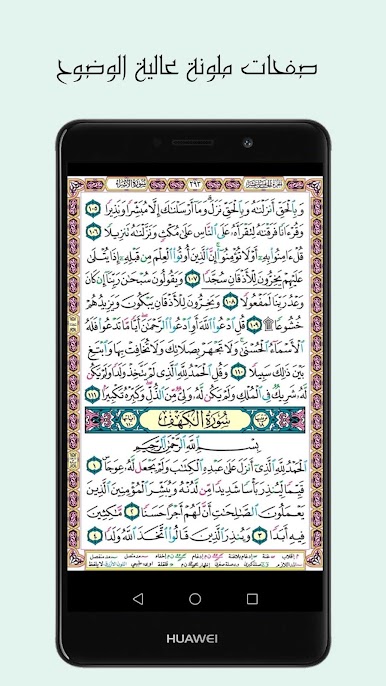 صفحات ملونة عالية الوضوح
سُورَةُ الإِسْرَاءِ ٢٩٣
وَبِالْحَقِّ أَنزَلْنَاهُ وَبِالْحَقِّ نَزَلَ وَمَا أَرْسَلْنَاكَ إِلَّا مُبَشِّرًا وَنَذِيرًا ١٠٥
وَقُرْءَانًا فَرَقْنَاهُ لِتَقْرَأَهُ عَلَى النَّاسِ عَلَى مُكْثٍ وَنَزَّلْنَاهُ تَنزِيلًا ١٠٦
قُلْ ءَامِنُوا بِهِ أَوْ لَا تُؤْمِنُوا إِنَّ الَّذِينَ أُوتُوا الْعِلْمَ مِن قَبْلِهِ إِذَا يُتْلَى
عَلَيْهِمْ يَخِرُّونَ لِلْأَذْقَانِ سُجَّدًا ١٠٧ وَيَقُولُونَ سُبْحَانَ رَبِّنَا إِن كَانَ
وَعْدُ رَبِّنَا لَمَفْعُولًا ١٠٨ وَيَخِرُّونَ لِلْأَذْقَانِ يَبْكُونَ وَيَزِيدُهُمْ
خُشُوعًا ۩ ١٠٩ قُلِ ادْعُوا اللَّهَ أَوِ ادْعُوا الرَّحْمَنَ أَيًّا مَّا تَدْعُوا فَلَهُ
الْأَسْمَاءُ الْحُسْنَى وَلَا تَجْهَرْ بِصَلَاتِكَ وَلَا تُخَافِتْ بِهَا وَابْتَغِ
بَيْنَ ذَلِكَ سَبِيلًا ١١٠ وَقُلِ الْحَمْدُ لِلَّهِ الَّذِي لَمْ يَتَّخِذْ وَلَدًا وَلَمْ يَكُن
لَّهُ شَرِيكٌ فِي الْمُلْكِ وَلَمْ يَكُن لَّهُ وَلِيٌّ مِّنَ الذُّلِّ وَكَبِّرْهُ تَكْبِيرًا ١١١
سُورَةُ الْكَهْفِ
بِسْمِ اللَّهِ الرَّحْمَنِ الرَّحِيمِ
الْحَمْدُ لِلَّهِ الَّذِي أَنزَلَ عَلَى عَبْدِهِ الْكِتَابَ وَلَمْ يَجْعَل لَّهُ عِوَجًا ١
قَيِّمًا لِّيُنذِرَ بَأْسًا شَدِيدًا مِّن لَّدُنْهُ وَيُبَشِّرَ الْمُؤْمِنِينَ الَّذِينَ
يَعْمَلُونَ الصَّالِحَاتِ أَنَّ لَهُمْ أَجْرًا حَسَنًا ٢ مَّاكِثِينَ
فِيهِ أَبَدًا ٣ وَيُنذِرَ الَّذِينَ قَالُوا اتَّخَذَ اللَّهُ وَلَدًا ٤
HUAWEI